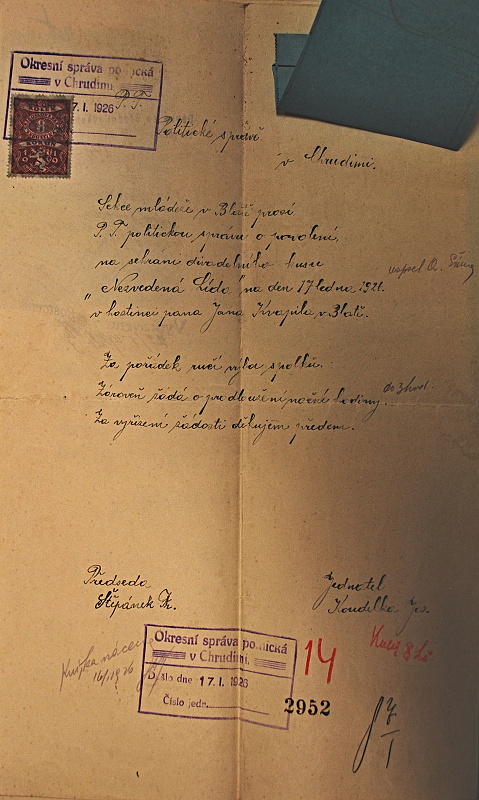 Okresní správa politická
v Chrudimi
17. I. 1926
P. T.
Politické správě
v Chrudimi.
Sekce mládeže v Blatě prosí
P. T. politickou správu o povolení,
na sehrání divadelního kusu
„Nezvedená Lída" na den 17 ledna 1926.
v hostinci pana Jana Kvapila v Blatě.
napsal
Za pořádek ručí výbor spolku.
Zároveň žádá o prodloužení noční hodiny.
do 3 hod.
Za vyřízení žádosti děkujem předem.
Předseda
Štěpánek Fr.
Jednatel
Koudelka Jos.
16/1 1926
Okresní správa politická
v Chrudimi.
Došlo dne 17. I. 1926
Číslo jedn.
14
2952
Kolek 8 Kč